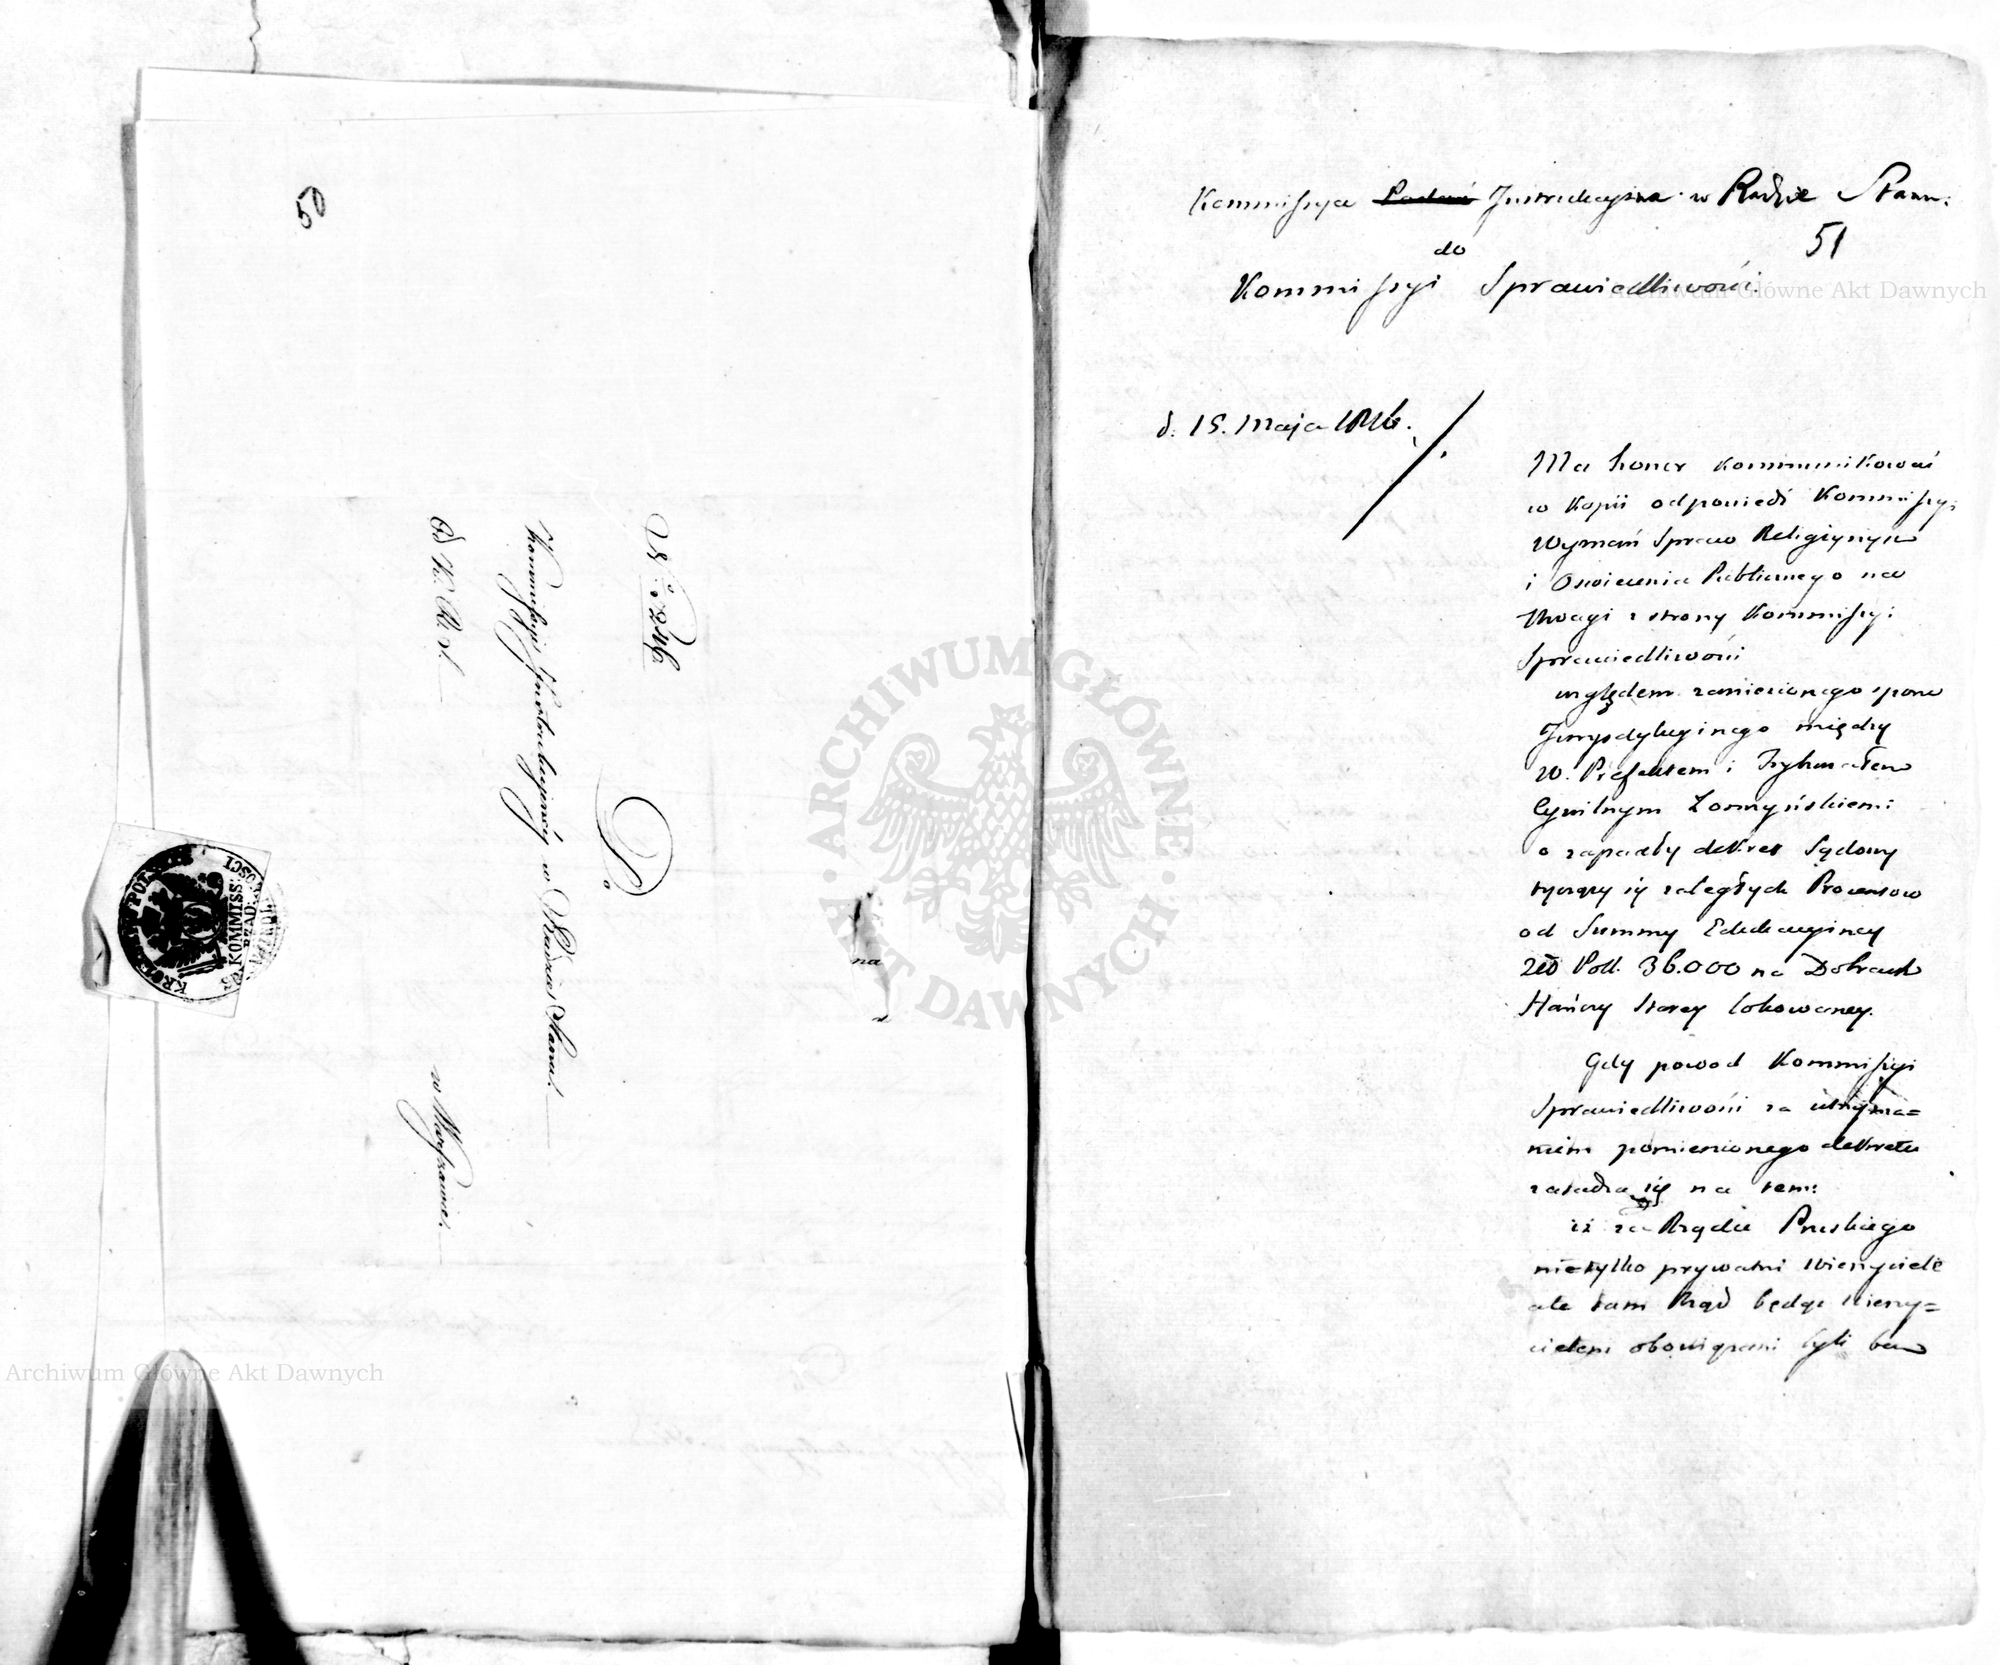 50
No 3246
Do
Kommissyi Instrukcyiney w Radzie Stanu.
Od K. R. S.
w Warszawie.
KRÓL: POL:
KOMMISS: RZĄD:
na
ARCHIWUM GŁÓWNE AKT DAWNYCH
Archiwum Główne Akt Dawnych
Kommissya Podań Instrukcyina w Radzie Stanu:
51
do
Kommissyi Sprawiedliwości.
Archiwum Główne Akt Dawnych
d: 15. Maja 1816.
Ma honor kommunikować
w Kopii odpowiedź Kommissyi
Wyznań Spraw Religiynych
i Oświecenia Publicznego na
Uwagi z strony Kommissyi
Sprawiedliwości
względem zaniesionego sporu
Juryzdykcyinego między
W. Prefektem i Trybunałem
Cywilnym Łomżyńskiem:
o zapadły dekret Sądowy
tyczący się zaległych Procentow
od Summy Edukacyiney
Zło Poll. 36.000 na Dobrach
Hańczy Starey lokowaney.
Gdy powod Kommissyi
Sprawiedliwości za utrzyma=
niem pomienionego dekretu
zasadza się na tem:
iż za Rządu Pruskiego
nietylko prywatni Wierzyciele
ale sam Rząd będąc Wierzy=
cielem obowiązani byli